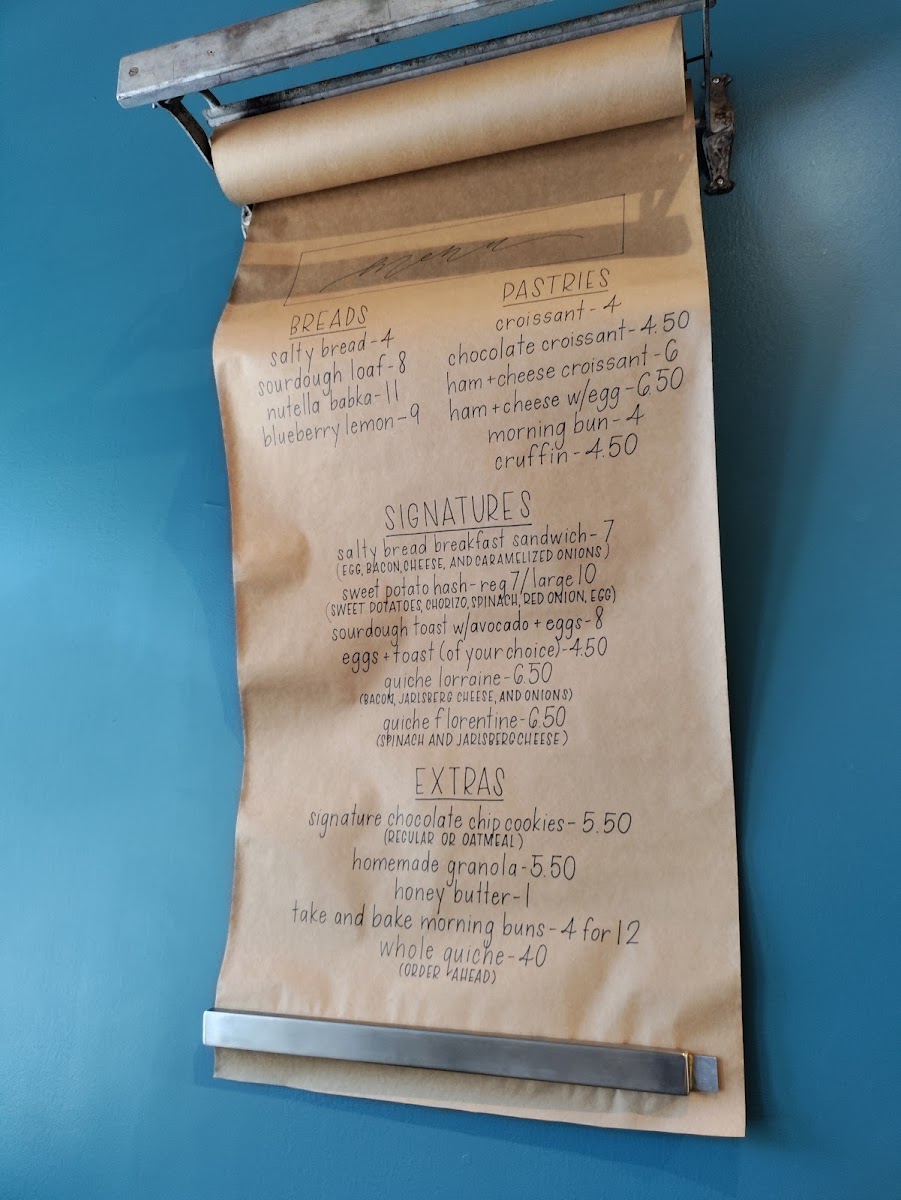 menu
BREADS
salty bread - 4
sourdough loaf - 8
nutella babka - 11
blueberry lemon - 9
PASTRIES
croissant - 4
chocolate croissant - 4.50
ham + cheese croissant - 6
ham + cheese w/egg - 6.50
morning bun - 4
cruffin - 4.50
SIGNATURES
salty bread breakfast sandwich - 7
(EGG, BACON, CHEESE, AND CARAMELIZED ONIONS)
sweet potato hash - reg 7/large 10
(SWEET POTATOES, CHORIZO, SPINACH, RED ONION, EGG)
sourdough toast w/avocado + eggs - 8
eggs + toast (of your choice) - 4.50
quiche lorraine - 6.50
(BACON, JARLSBERG CHEESE, AND ONIONS)
quiche florentine - 6.50
(SPINACH AND JARLSBERG CHEESE)
EXTRAS
signature chocolate chip cookies - 5.50
(REGULAR OR OATMEAL)
homemade granola - 5.50
honey butter - 1
take and bake morning buns - 4 for 12
whole quiche - 40
(ORDER AHEAD)